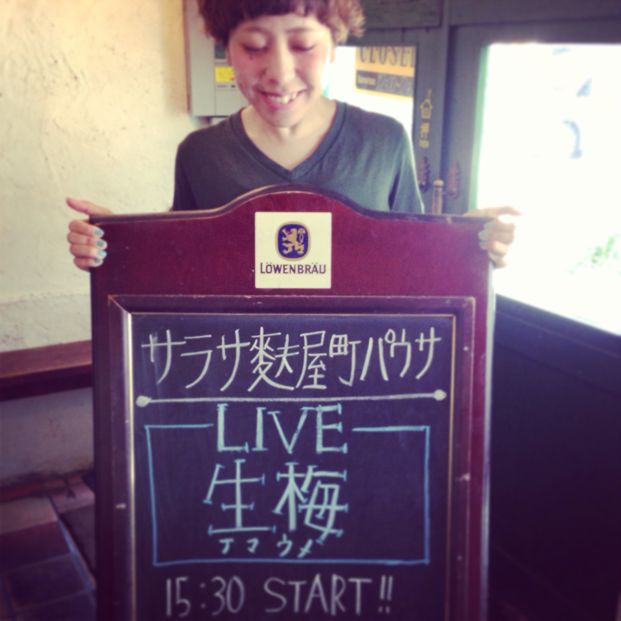 CLOSED
LÖWENBRÄU
サラサ麩屋町パウサ
LIVE
生梅
ナマウメ
15:30 START!!